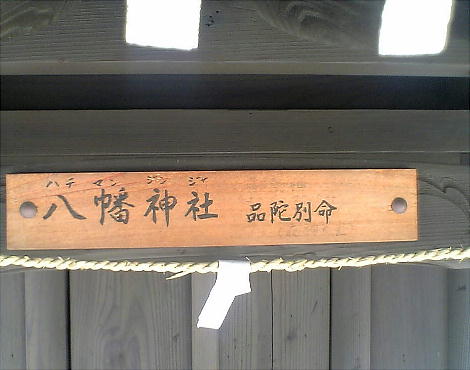 ハチ マン ジン ジャ
八幡神社 品陀別命